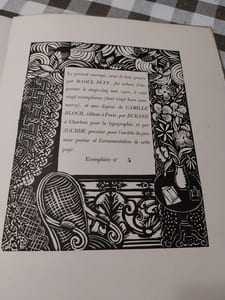 Le présent ouvrage, orné de bois gravés
par RAOUL DUFY, fut achevé d'im-
primer le vingt-cinq mai 1920, à cent
vingt exemplaires (dont vingt hors com-
merce), et aux dépens de CAMILLE
BLOCH, éditeur à Paris, par DURAND
à Chartres pour la typographie, et par
JOURDE, pressier, pour l'en-tête du pre-
mier poème et l'ornementation de cette
page.
Exemplaire n° 5